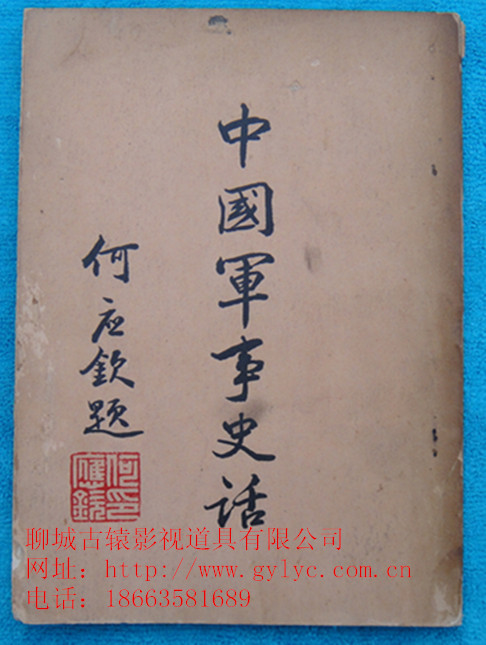 中國軍事史话
何应欽题
何應欽印
聊城古辕影视道具有限公司
网址：http://www.gylyc.com.cn
电话：18663581689